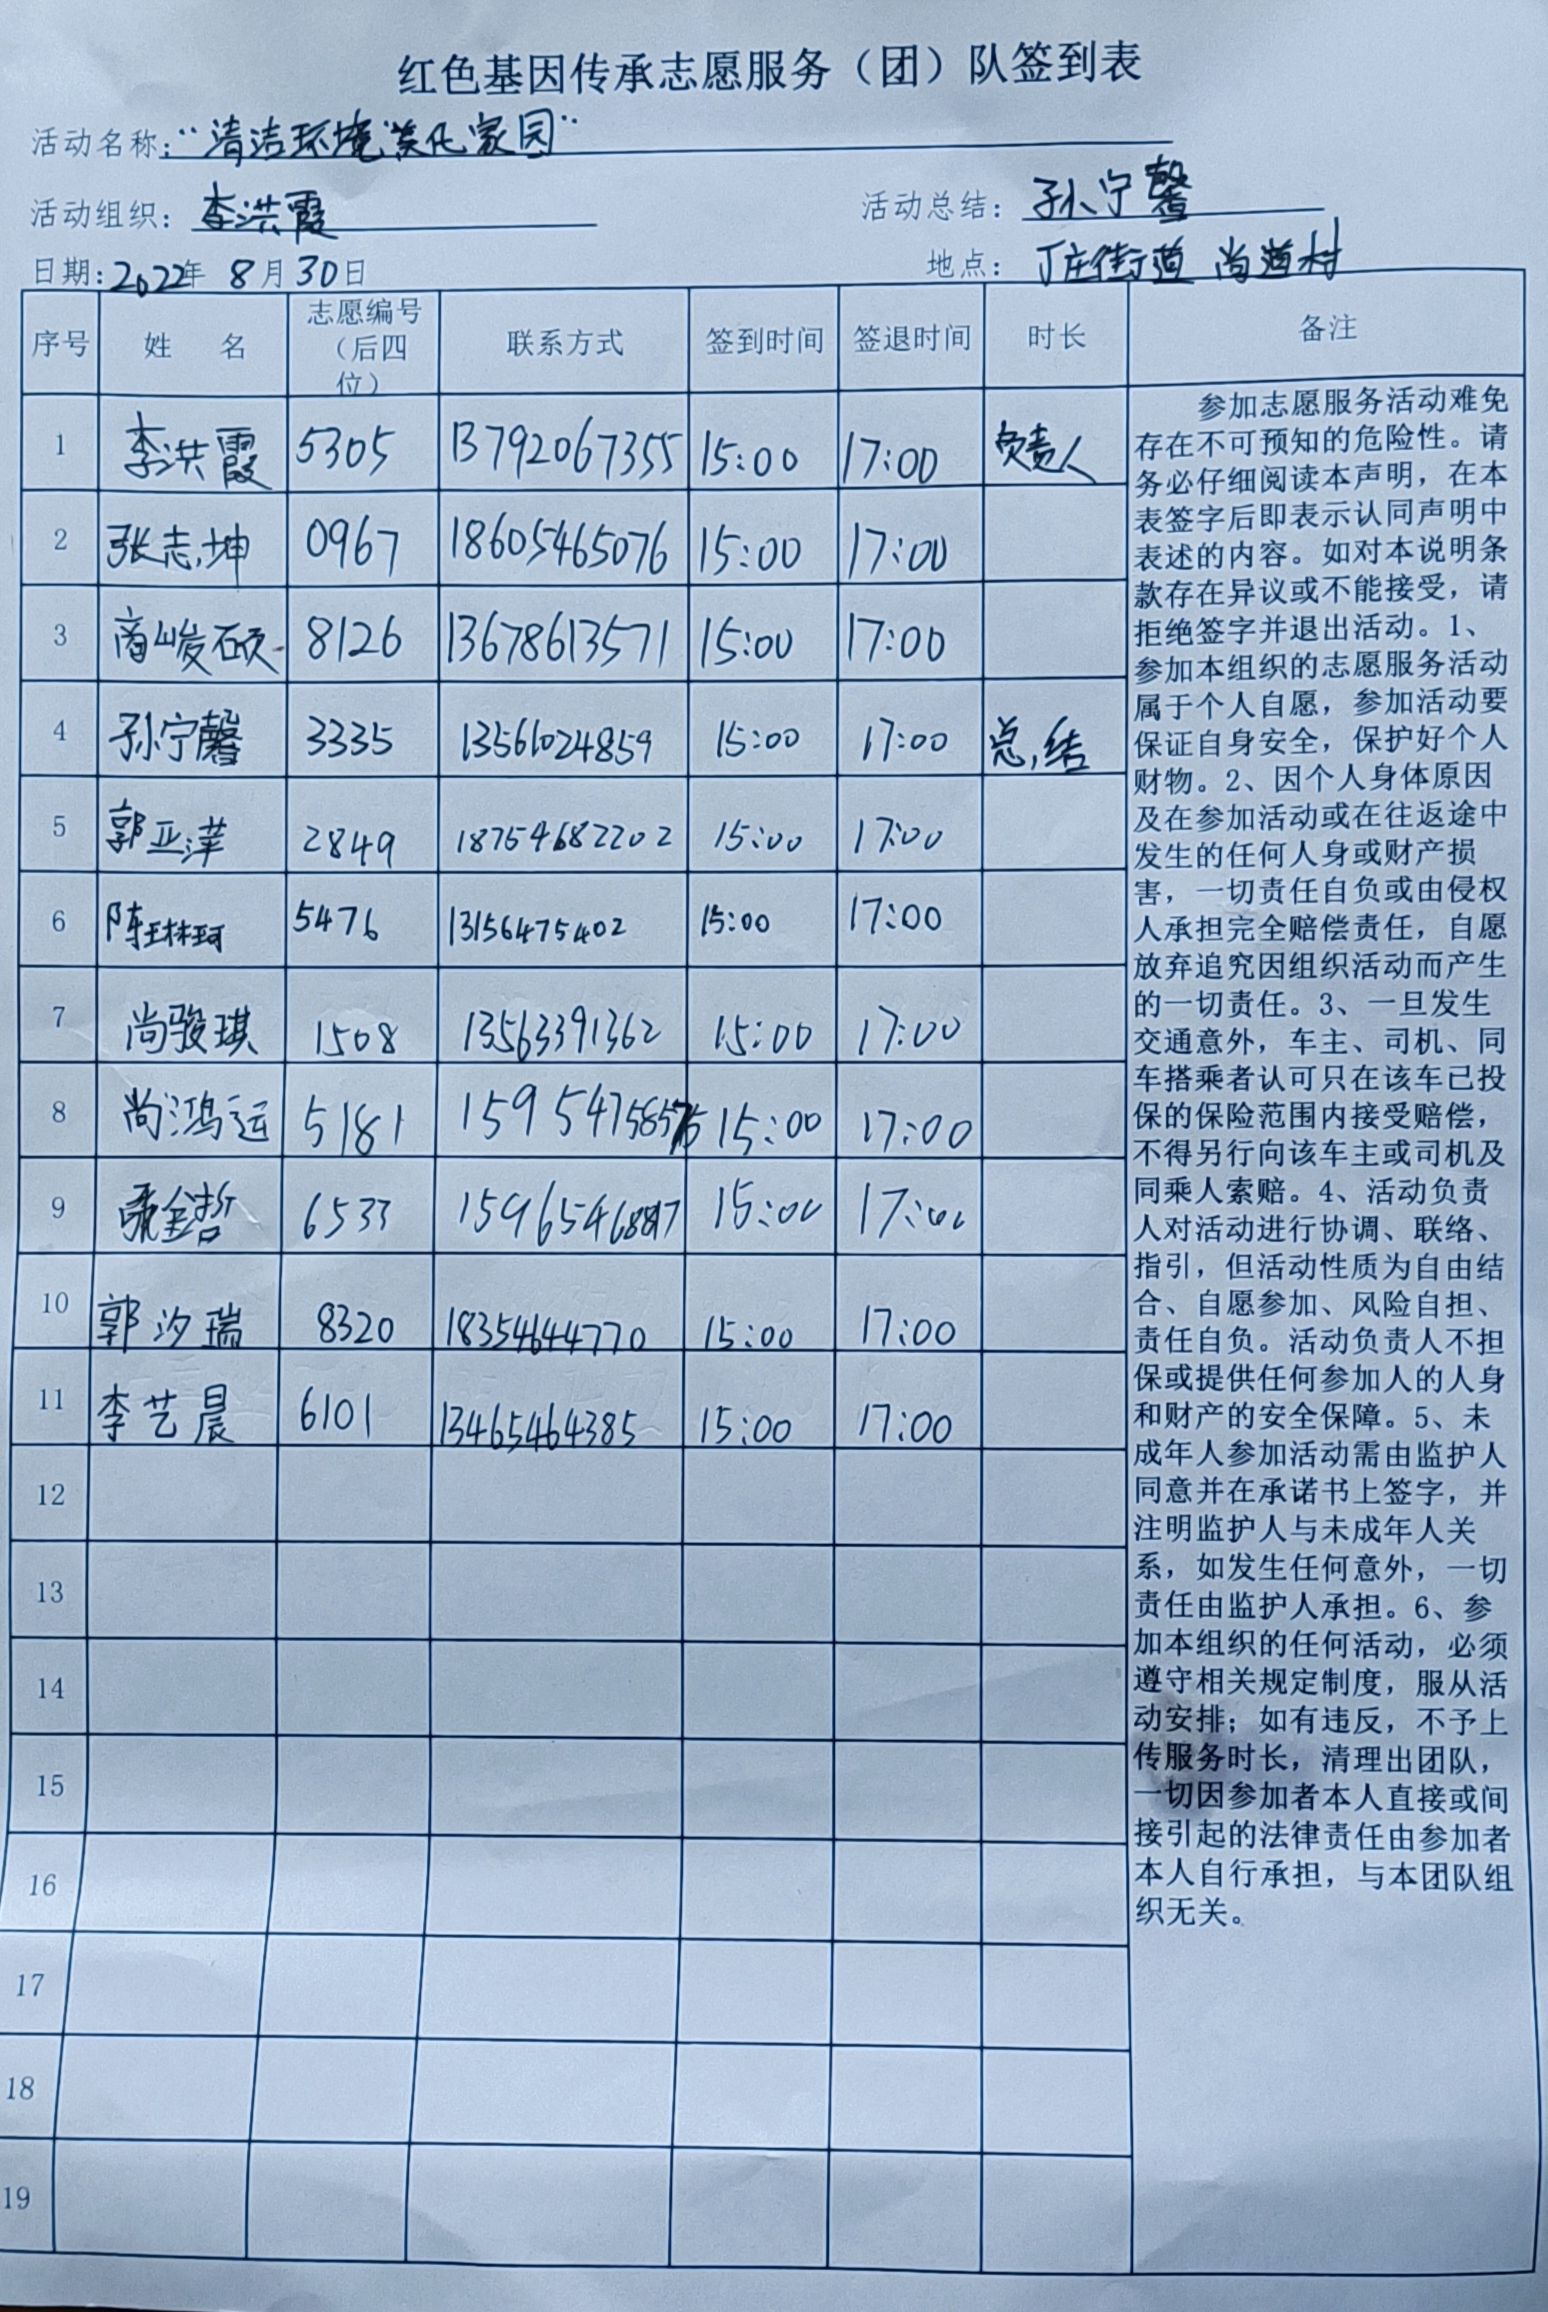 红色基因传承志愿服务（团）队签到表
活动名称：“清洁环境，美化家园”
活动组织：李洪霞 活动总结：孙宁馨
日期：2022年 8月30日 地点：丁庄街道 尚道村
序号 姓 名 志愿编号（后四位） 联系方式 签到时间 签退时间 时长 备注
1 李洪霞 5305 13792067355 15:00 17:00 负责人
2 张志坤 0967 18605465076 15:00 17:00
3 商峻硕 8126 13678613571 15:00 17:00
4 孙宁馨 3335 13561024859 15:00 17:00 总结
5 郭亚洋 2849 18754682202 15:00 17:00
6 陈琳珂 5476 13156475402 15:00 17:00
7 尚骏琪 1508 13563391362 15:00 17:00
8 尚鸿运 5181 15:00 17:00
9 6533 15:00 17:00
10 郭汐瑞 8320 18354644770 15:00 17:00
11 李艺晨 6101 13465464385 15:00 17:00
12
13
14
15
16
17
18
19
参加志愿服务活动难免
存在不可预知的危险性。请
务必仔细阅读本声明，在本
表签字后即表示认同声明中
表述的内容。如对本说明条
款存在异议或不能接受，请
拒绝签字并退出活动。1、
参加本组织的志愿服务活动
属于个人自愿，参加活动要
保证自身安全，保护好个人
财物。2、因个人身体原因
及在参加活动或在往返途中
发生的任何人身或财产损
害，一切责任自负或由侵权
人承担完全赔偿责任，自愿
放弃追究因组织活动而产生
的一切责任。3、一旦发生
交通意外，车主、司机、同
车搭乘者认可只在该车已投
保的保险范围内接受赔偿，
不得另行向该车主或司机及
同乘人索赔。4、活动负责
人对活动进行协调、联络、
指引，但活动性质为自由结
合、自愿参加、风险自担、
责任自负。活动负责人不担
保或提供任何参加人的人身
和财产的安全保障。5、未
成年人参加活动需由监护人
同意并在承诺书上签字，并
注明监护人与未成年人关
系，如发生任何意外，一切
责任由监护人承担。6、参
加本组织的任何活动，必须
遵守相关规定制度，服从活
动安排；如有违反，不予上
传服务时长，清理出团队，
一切因参加者本人直接或间
接引起的法律责任由参加者
本人自行承担，与本团队组
织无关。